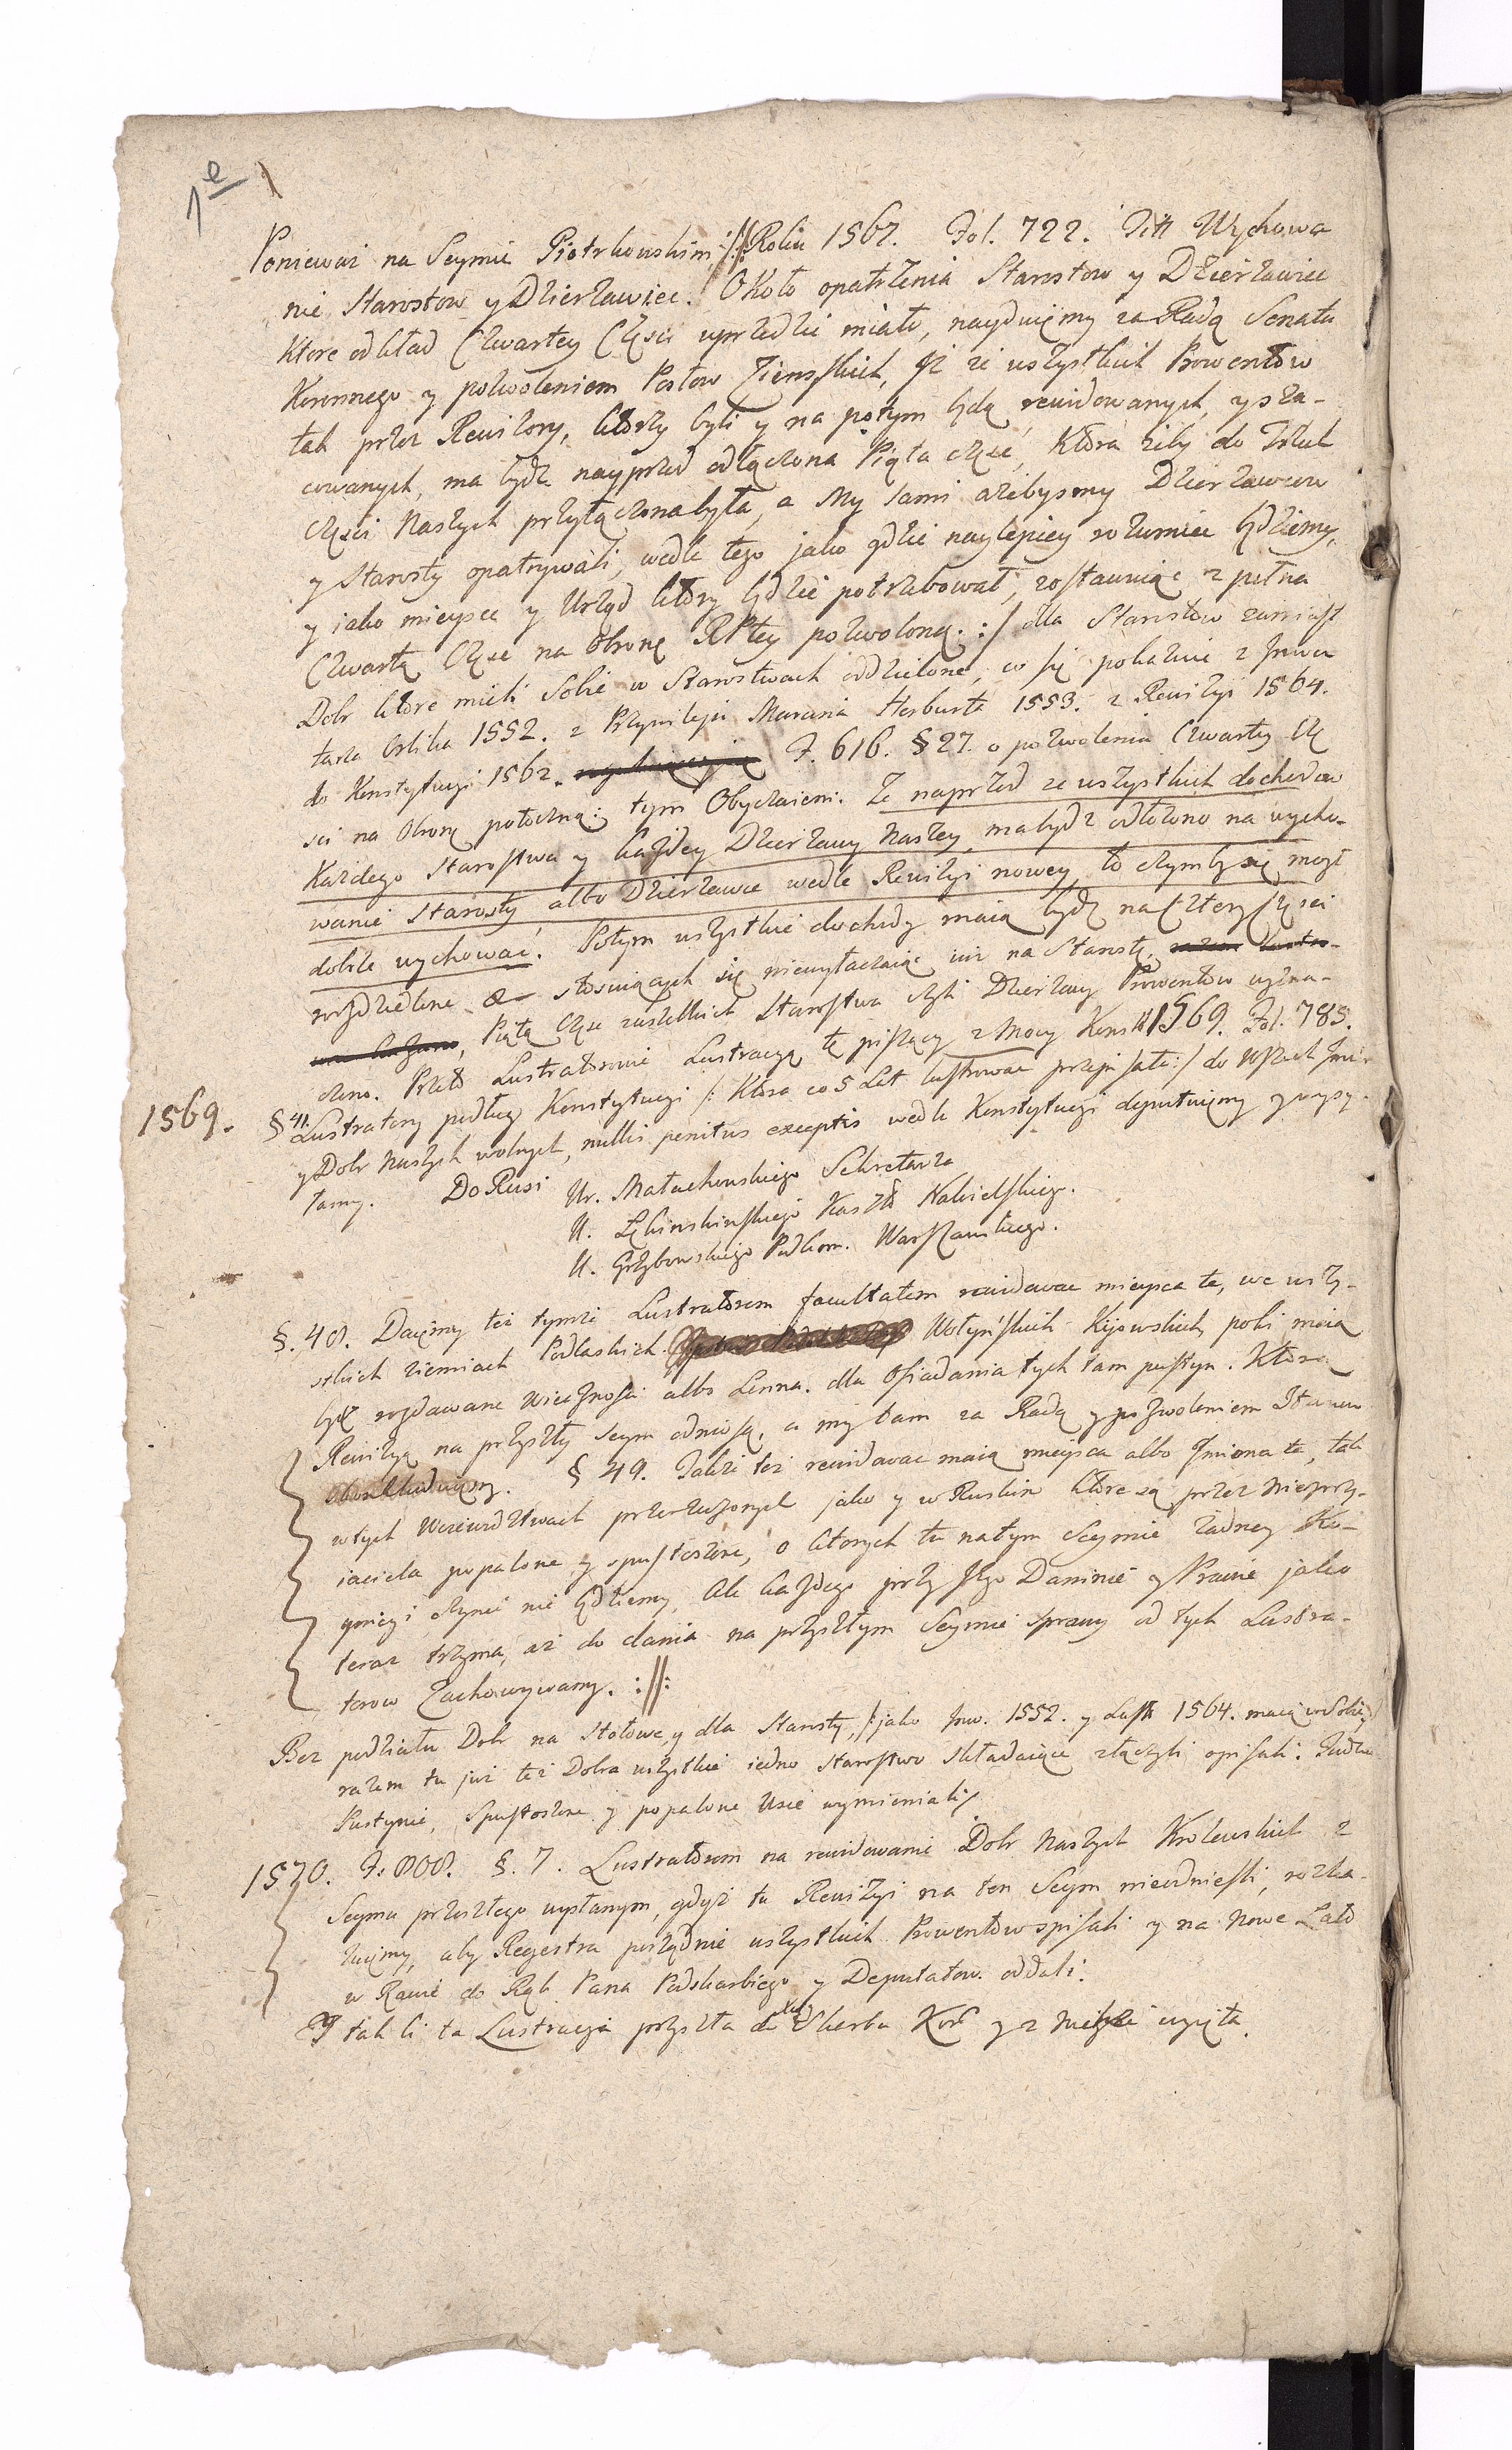 1e
Poniewaz na Seymie Piotrkowskim :// Roku 1567. Fol. 722. Titt Wychowa
nie Starostow y Dzierzawiec. Około opatrzenia Starostow y Dzierzawiec
Ktore odkład Czwartey Częsci uprzedzic miało, nayduięmy za Radą Senatu
Koronnego y pozwoleniem Posłow Ziemskich, Jż ze wszystkich Prowentow
tak przez Rewizory, ktorzy byli y na potym będą rewidowanych, y sza-
cowanych, ma bydz nayprzod odłączona Piąta część, Ktora zeby do Trzech
części Naszych przyłączona była, a My sami azebysmy Dzierzawce
y Starosty opatrywali, wedle tego jako gdzie naylepiey rozumiec będziemy,
y jako mieysce y Urząd ktory będzie potrzebował, zostawuiąc z pełna
Czwartą Część na obronę RPltey pozwoloną. :/ dla Starostow zamiast
Dobr ktore mieli Sobie w Starostwach oddzielone, co się pokazuie z Jnwen
tarza Orlika 1552. z Przywileju Marcina Herburta 1553. z Rewizyi 1564.
do Konstytucyi 1562. F. 616. § 27. o pozwoleniu Czwartey Czę
sci na Obronę potoczną: tym Obyczaiem. Ze naprzod ze wszystkich dochodow
Kazdego Starostwa y kazdey Dzierzawy Naszey, ma bydz odłozono na wycho-
wanie Starosty, albo Dzierzawce wedle Rewizyi nowey, to czym by się mogł
dobrze wychować. Potym wszystkie dochody maią bydz na Cztery Częsci
rozdzielone. stosuiących się niewytaczaiąc iuz na Starostę,
Piątą Część wszelkich Starostwa czyli Dzierzawy Prowentow wyzna-
czono. Przeto Lustratorowie Lustracyą tę piszący z Mocy Konstt 1569. Fol. 785.
1569. § 41. Lustratory podług Konstytucyi /: Ktora co 5 Lat lustrowac przepisała :/ do Wszech Jmion
y Dobr Naszych wolnych, nullis penitus exceptis wedle Konstytucyi deputuięmy y wysy-
łamy. Do Rusi Ur. Małachowskiego Sekretarza
U. Kaszt Nakielskiego.
U. Grzybowskiego Podkom. Warszawskiego.
§. 48. Daięmy tez tymze Lustratorom facultatem rewidowac mieysca te, we wszy-
stkich ziemiach Podlaskich. Wołyńskich Kijowskich, poki maią
bydź rozdawane Wiecznoscią albo Lenna. dla Osiadania tych tam pustyn. Ktorą
Rewizyą na przyszły Seym odniosą, a my tam za Radą y pozwoleniem Stanow
§ 49. Takze tez rewidowac maią mieysca albo Jmiona te, tak
w tych Woiewodztwach przerzeczonych jako y w Ruskim ktore są przez Nieprzy-
iaciela popalone y spustoszone, o ktorych tu natym Seymie zadney Ko-
gnicyi czynic nie będziemy, Ale kazdego przy Jego Daninie y Prawie jako
teraz trzyma, az do dania na przyszłym Seymie sprawy od tych Lustra-
torow Zachowywamy. ://:
Bez podziału Dobr na Stołowe, y dla Starosty, /:jako Jnw. 1552. y Lust. 1564. maią w Sobie/
razem tu juz tez Dobra wszystkie iedno Starostwo składaiące złączyli opisali.
Pustynie, Spustoszone y popalone Wsie wymieniali/
1570. F. 808. §. 7. Lustratorom na rewidowanie Dobr Naszych Krolewskich z
Seymu przeszłego wysłanym, gdyż tu Rewizyi na ten Seym nieodniesli, rozka-
zuięmy, aby Regestra porządnie wszystkich Prowentow spisali y na Nowe Lato
w Rawie do Rąk Pana Podskarbiego y Deputatow. oddali.
Y tak li ta Lustracya przyszła do Skarbu Kor y z niego wyięta.